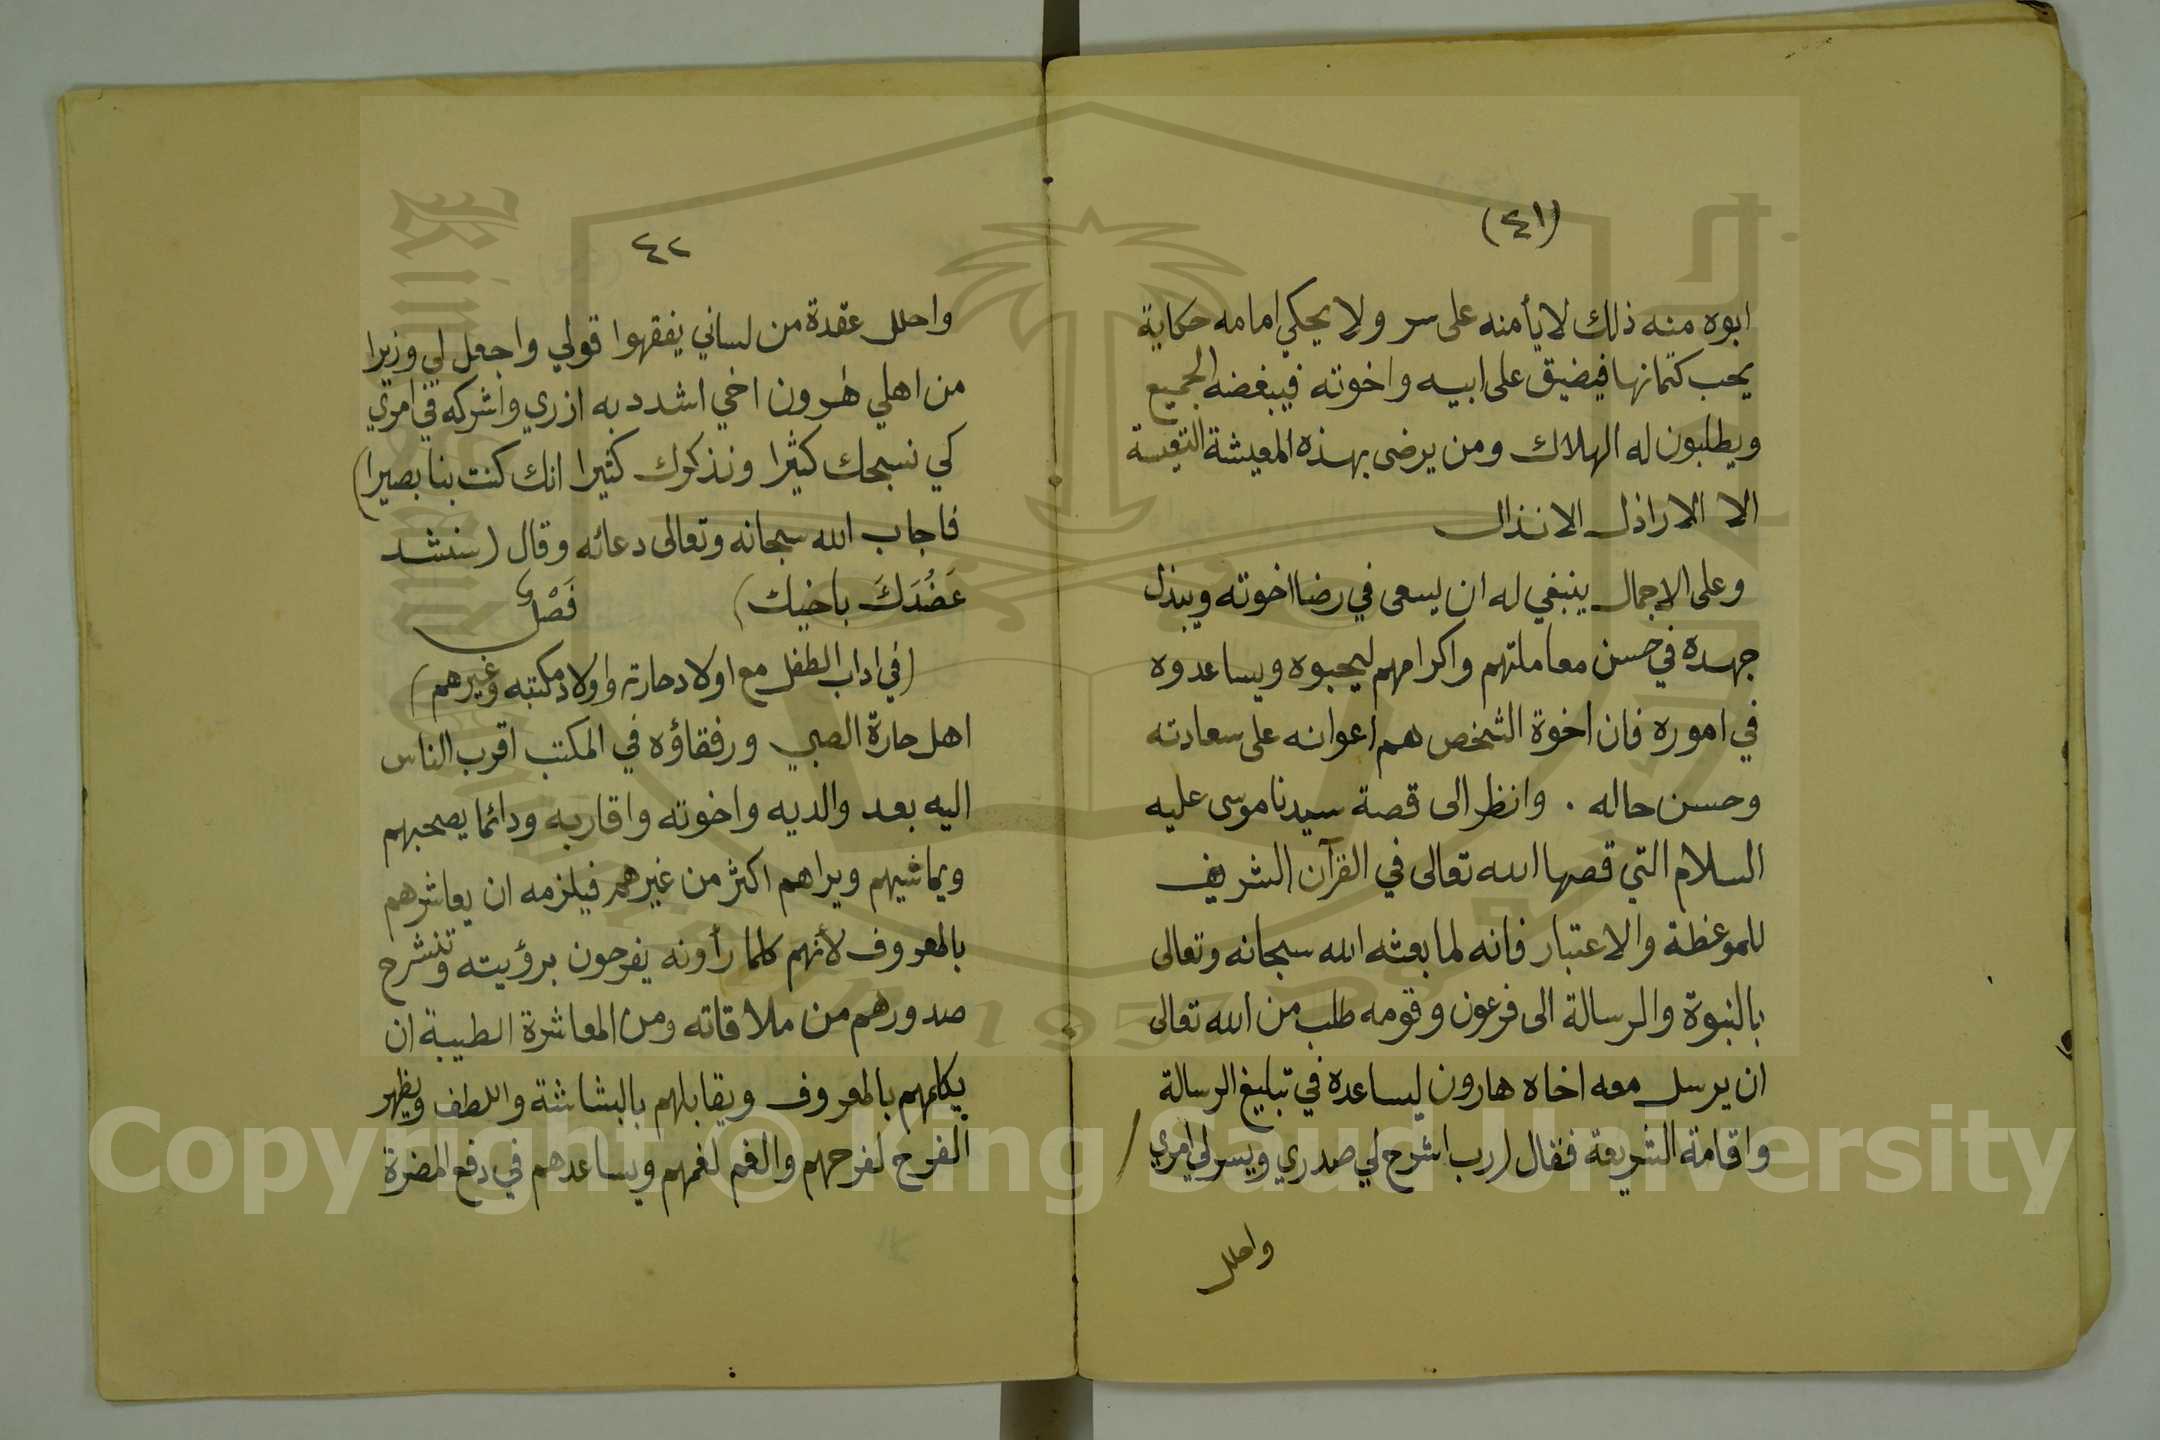 (٤١)
ابوه منه ذلك لا يأمنه على سر ولا يحكي امامه حكاية
يحب كتمانها فيضيق على ابيه واخوته فيبغضه الجميع
ويطلبون له الهلاك ومن يرضى بهذه المعيشة التعيسة
الا الاراذل الانذال
وعلى الاجمال ينبغي له ان يسعى في رضا اخوته ويبذل
جهده في حسن معاملتهم واكرامهم ليحبوه ويساعدوه
في اموره فان اخوة الشخص هم اعوانه على سعادته
وحسن حاله . وانظر الى قصة سيدنا موسى عليه
السلام التي قصها الله تعالى في القرآن الشريف
للموعظة والاعتبار فانه لما بعثه الله سبحانه وتعالى
بالنبوة والرسالة الى فرعون وقومه طلب من الله تعالى
ان يرسل معه اخاه هارون ليساعده في تبليغ الرسالة
واقامة الشريعة فقال (رب اشرح لي صدري ويسر لي امري
واحلل
٤٢
واحلل عقدة من لساني يفقهوا قولي واجعل لي وزيرا
من اهلي هرون اخي اشدد به ازري واشركه في امري
كي نسبحك كثيرا ونذكرك كثيرا انك كنت بنا بصيرا)
فاجاب الله سبحانه وتعالى دعائه وقال (سنشد
عَضُدَكَ باخيك) فَصْلٌ
(في اداب الطفل مع اولاد حارته واولاد مكتبه وغيرهم)
اهل حارة الصبي ورفقاؤه في المكتب اقرب الناس
اليه بعد والديه واخوته واقاربه ودائما يصحبهم
ويماشيهم ويراهم اكثر من غيرهم فيلزمه ان يعاشرهم
بالمعروف لأنهم كلما رأونه يفرحون برؤيته وتنشرح
صدورهم من ملاقاته ومن المعاشرة الطيبة ان
يكلمهم بالمعروف ويقابلهم بالبشاشة واللطف ويظهر
الفرح لفرحهم والغم لغمهم ويساعدهم في دفع المضرة
Copyright © King Saud University
1957